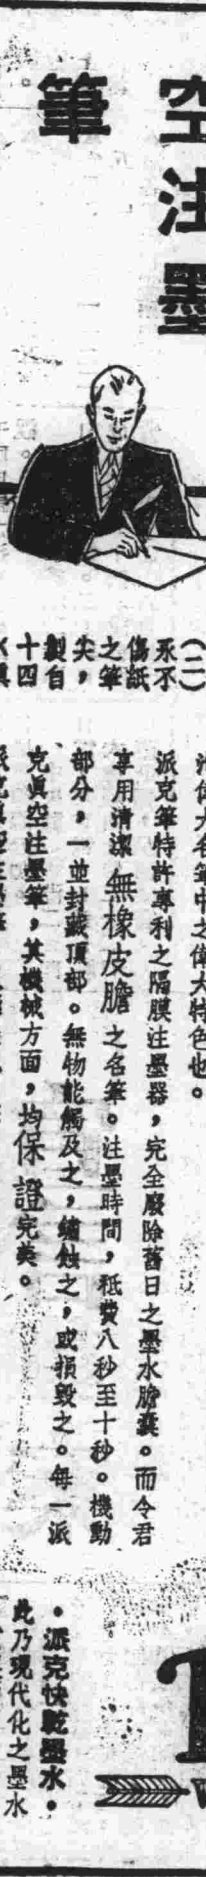 空注墨
筆
（二）
永不
傷紙
之筆
尖，
製自
十四
偉大名筆中之偉大特色也。
派克筆特許專利之隔膜注墨器，完全廢除舊日之墨水膽囊。而令君
享用清潔無橡皮膽之名筆。注墨時間，祗費八秒至十秒。機動
部分，一並封藏頂部。無物能觸及之，鏽蝕之，或損毀之。每一派
克眞空注墨筆，其機械方面，均保證完美。
·派克快乾墨水·
此乃現代化之墨水